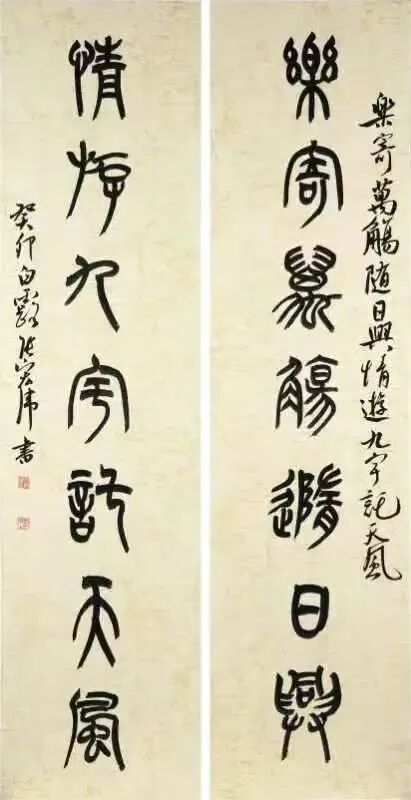 樂寄萬觴随日興情遊九宇託天風
樂寄萬觴隨日興
情遊九宇託天風
癸卯白露張宏偉書